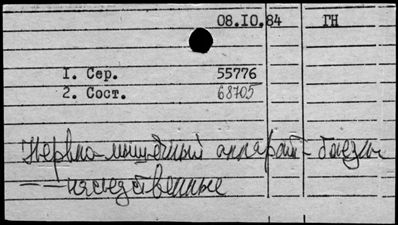 08.IO.84 ГН
I. Сер. 55776
2. Сост. 68705
Нервно-мышечный аппарат - болезни
— — наследственные